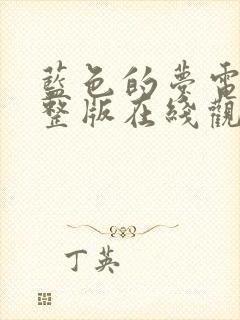 藍色的夢電
整版在綫觀
丁英